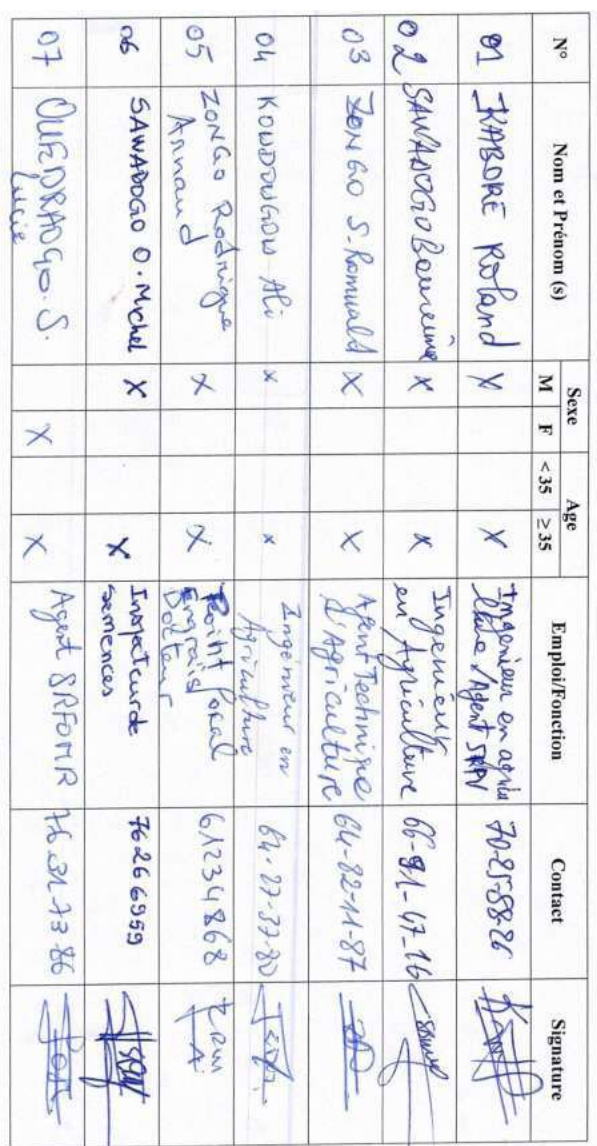 N° Nom et Prénom (s) Sexe Age Emploi/Fonction Contact Signature
M F < 35 ≥ 35
01 KABORE Roland X X Ingénieur en agri Agent SRPV 70-25-58-26
02 SAWADOGO X X Ingénieur en Agriculture 66-91-47-16
03 ZONGO S. Romuald X X Agent Technique d'Agriculture 64-82-11-87
04 KOUDOUGOU Ali X X Ingénieur en Agriculture 64-27-37-80
05 ZONGO Rodrigue Arnaud X X Point focal Engrais Docteur 61234868
06 SAWADOGO O. Michel X X Inspecteur de semences 76266959
07 OUEDRAOGO. S. Lucie X X Agent SRFOMR 76-31-73-86